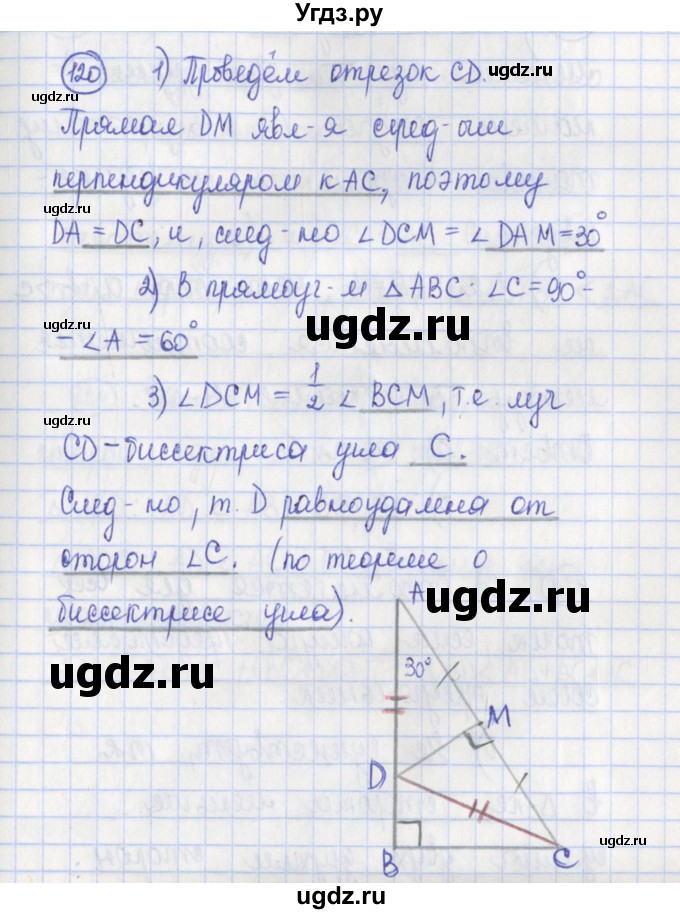 Угдз.ру
120 1) Проведём отрезок CD.
ugdz.ru
ugdz.ru
Прямая DM явл-я серед-ым
перпендикуляром к AC, поэтому
ugdz.ru
DA = DC, и, след-но ∠DCM = ∠DAM = 30°
ugdz.ru
2) В прямоуг-м △ABC ∠C = 90° -
ugdz.ru
- ∠A = 60°
ugdz.ru
3) ∠DCM = 1/2 ∠BCM, т.е. луч
CD - биссектриса угла C.
ugdz.ru
След-но, т. D равноудалена от
сторон ∠C. (по теореме о
биссектрисе угла).
ugdz.ru
ugdz.ru
ugdz.ru
A
30°
M
D
ugdz.ru
B
C
ugdz.ru